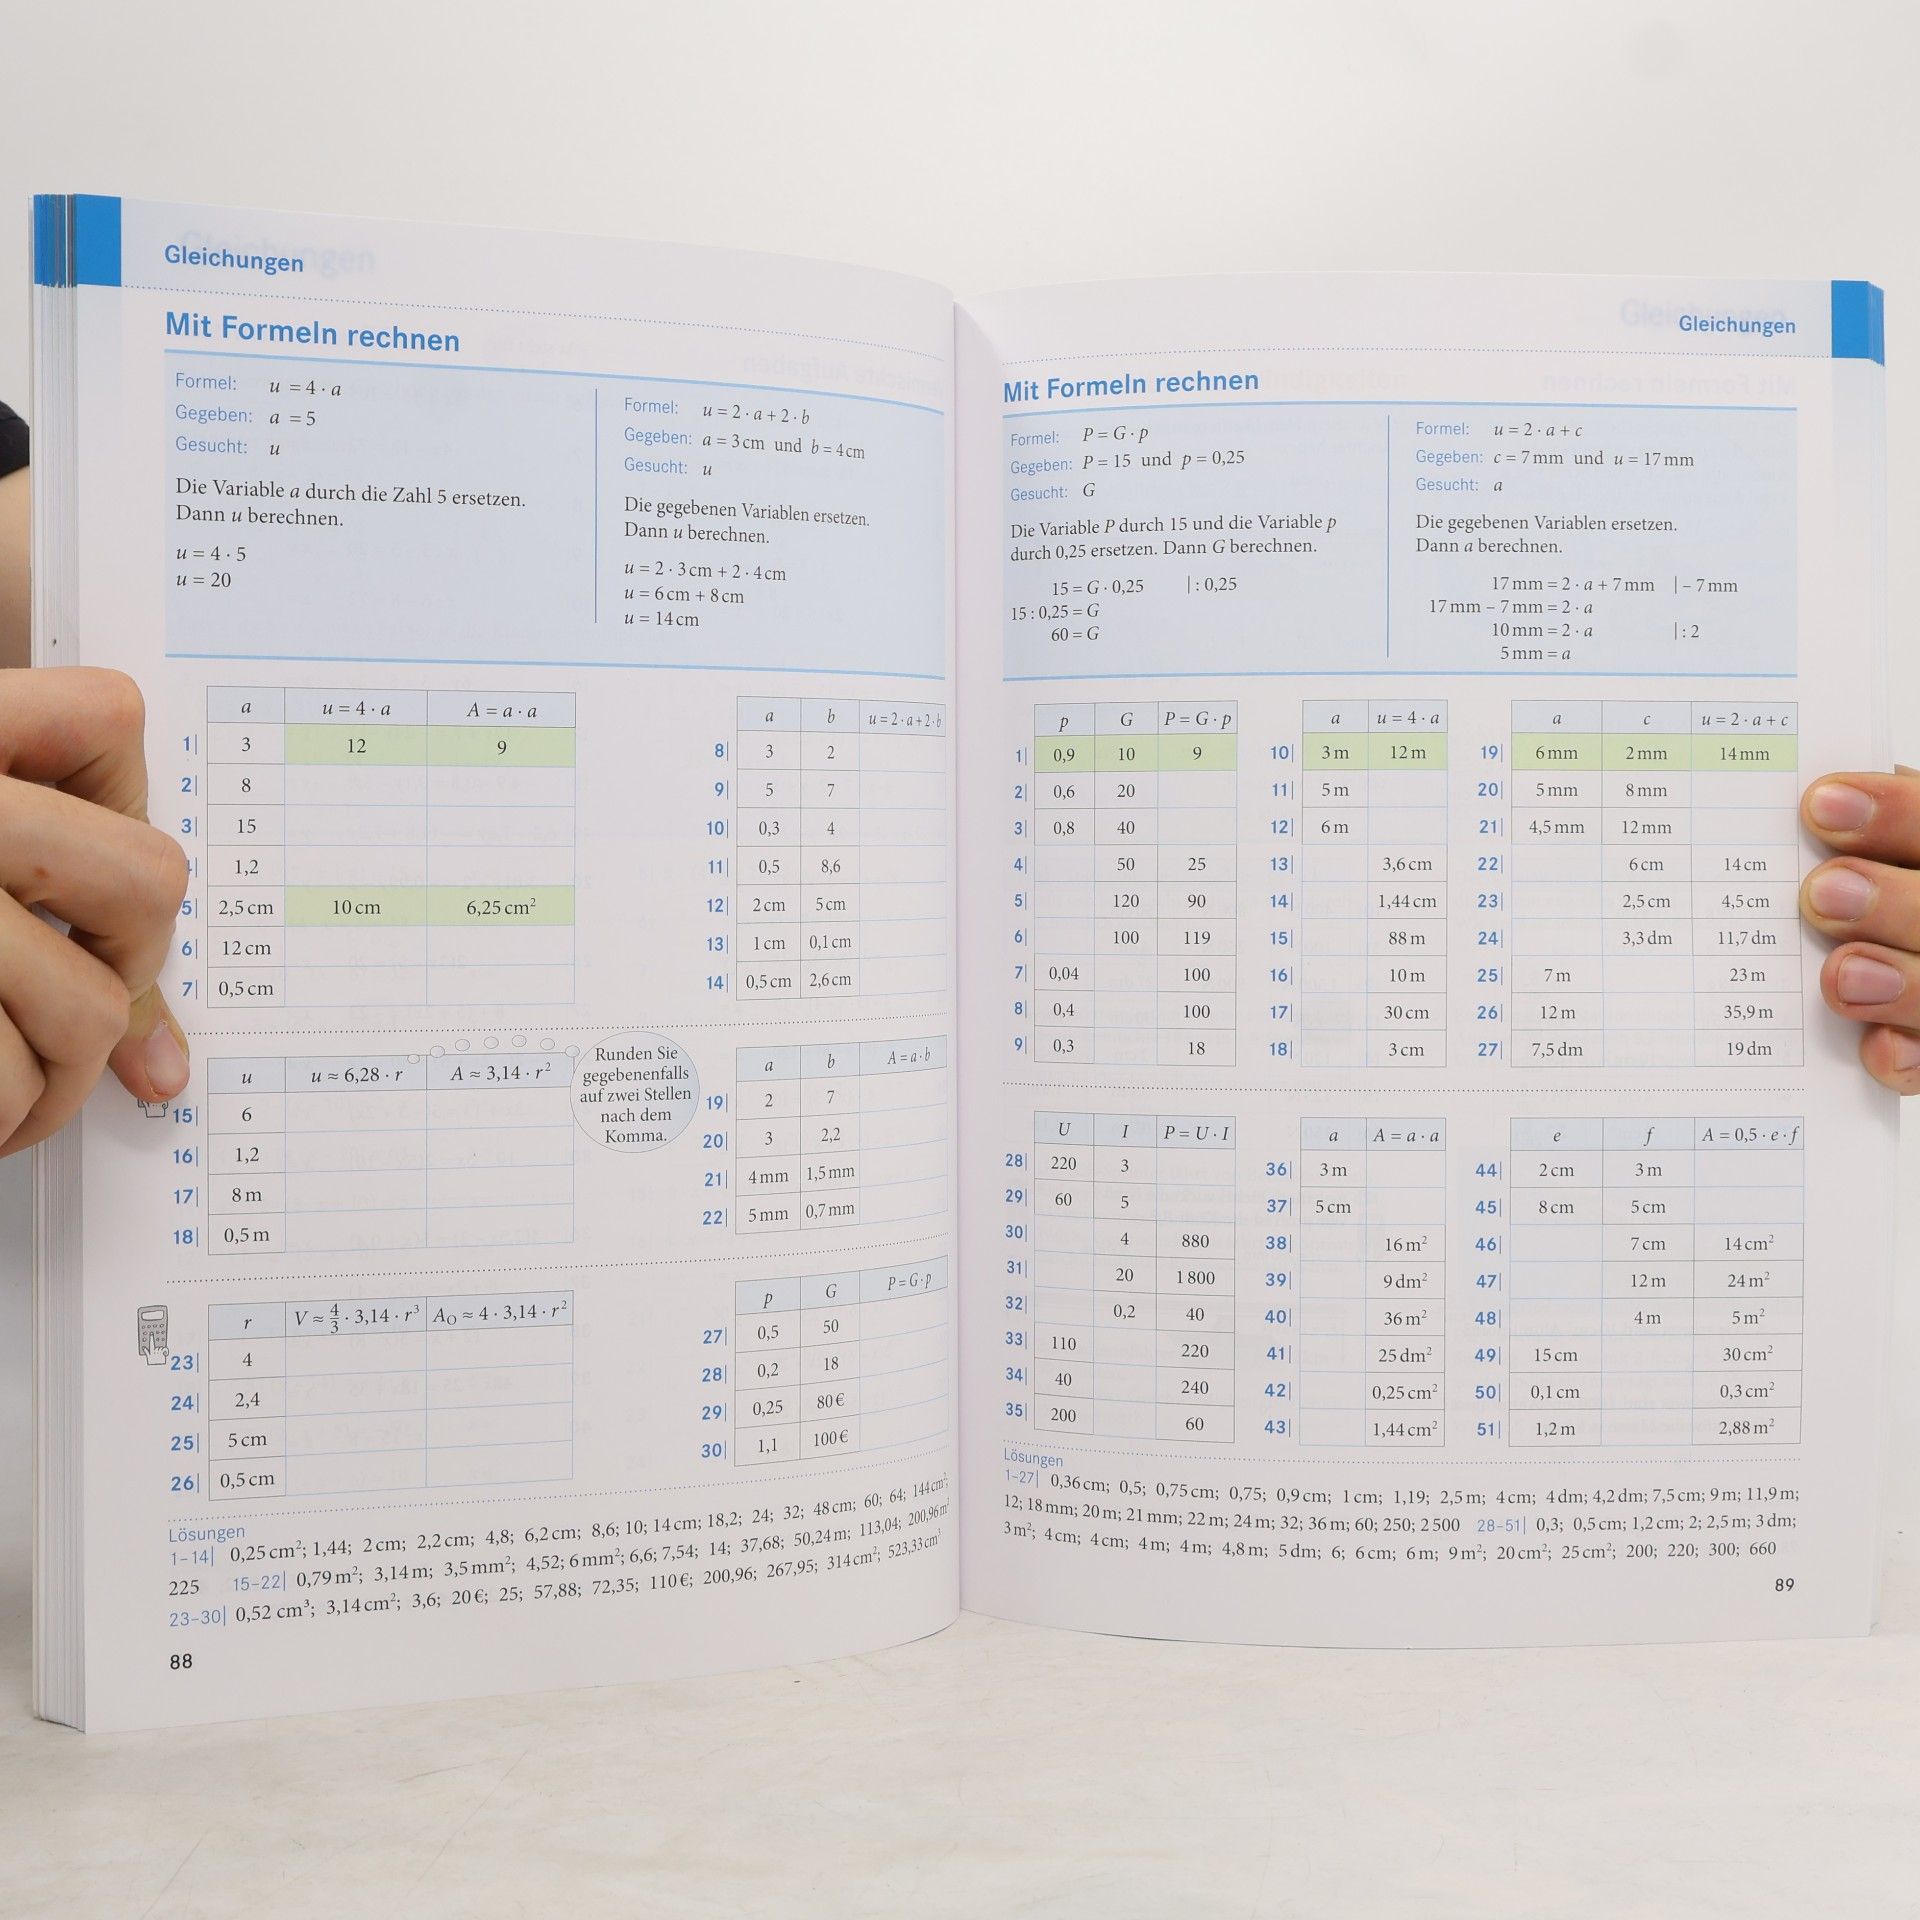 Gleichungen
Mit Formeln rechnen
Formel: u = 4 · a
Gegeben: a = 5
Gesucht: u
Die Variable a durch die Zahl 5 ersetzen.
Dann u berechnen.
u = 4 · 5
u = 20
Formel: u = 2 · a + 2 · b
Gegeben: a = 3 cm und b = 4 cm
Gesucht: u
Die gegebenen Variablen ersetzen.
Dann u berechnen.
u = 2 · 3 cm + 2 · 4 cm
u = 6 cm + 8 cm
u = 14 cm
a u = 4 · a A = a · a
1| 3 12 9
2| 8
3| 15
1,2
5| 2,5 cm 10 cm 6,25 cm²
6| 12 cm
7| 0,5 cm
a b u = 2 · a + 2 · b
8| 3 2
9| 5 7
10| 0,3 4
11| 0,5 8,6
12| 2 cm 5 cm
13| 1 cm 0,1 cm
14| 0,5 cm 2,6 cm
u u ≈ 6,28 · r A ≈ 3,14 · r²
15| 6
16| 1,2
17| 8 m
18| 0,5 m
Runden Sie
gegebenenfalls
auf zwei Stellen
nach dem
Komma.
a b A = a · b
19| 2 7
20| 3 2,2
21| 4 mm 1,5 mm
22| 5 mm 0,7 mm
r V ≈ 4/3 · 3,14 · r³ A_O ≈ 4 · 3,14 · r²
23| 4
24| 2,4
25| 5 cm
26| 0,5 cm
p G P = G · p
27| 0,5 50
28| 0,2 18
29| 0,25 80 €
30| 1,1 100 €
Lösungen
1–14| 0,25 cm²; 1,44; 2 cm; 2,2 cm; 4,8; 6,2 cm; 8,6; 10; 14 cm; 18,2; 24; 32; 48 cm; 60; 64; 144 cm²;
225 15–22| 0,79 m²; 3,14 m; 3,5 mm²; 4,52; 6 mm²; 6,6; 7,54; 14; 37,68; 50,24 m; 113,04; 200,96 m²
23–30| 0,52 cm³; 3,14 cm²; 3,6; 20 €; 25; 57,88; 72,35; 110 €; 200,96; 267,95; 314 cm²; 523,33 cm³
88
Gleichungen
Mit Formeln rechnen
Formel: P = G · p
Gegeben: P = 15 und p = 0,25
Gesucht: G
Die Variable P durch 15 und die Variable p
durch 0,25 ersetzen. Dann G berechnen.
15 = G · 0,25 | : 0,25
15 : 0,25 = G
60 = G
Formel: u = 2 · a + c
Gegeben: c = 7 mm und u = 17 mm
Gesucht: a
Die gegebenen Variablen ersetzen.
Dann a berechnen.
17 mm = 2 · a + 7 mm | – 7 mm
17 mm – 7 mm = 2 · a
10 mm = 2 · a | : 2
5 mm = a
p G P = G · p
1| 0,9 10 9
2| 0,6 20
3| 0,8 40
4| 50 25
5| 120 90
6| 100 119
7| 0,04 100
8| 0,4 100
9| 0,3 18
a u = 4 · a
10| 3 m 12 m
11| 5 m
12| 6 m
13| 3,6 cm
14| 1,44 cm
15| 88 m
16| 10 m
17| 30 cm
18| 3 cm
a c u = 2 · a + c
19| 6 mm 2 mm 14 mm
20| 5 mm 8 mm
21| 4,5 mm 12 mm
22| 6 cm 14 cm
23| 2,5 cm 4,5 cm
24| 3,3 dm 11,7 dm
25| 7 m 23 m
26| 12 m 35,9 m
27| 7,5 dm 19 dm
U I P = U · I
28| 220 3
29| 60 5
30| 4 880
31| 20 1 800
32| 0,2 40
33| 110 220
34| 40 240
35| 200 60
a A = a · a
36| 3 m
37| 5 cm
38| 16 m²
39| 9 dm²
40| 36 m²
41| 25 dm²
42| 0,25 cm²
43| 1,44 cm²
e f A = 0,5 · e · f
44| 2 cm 3 m
45| 8 cm 5 cm
46| 7 cm 14 cm²
47| 12 m 24 m²
48| 4 m 5 m²
49| 15 cm 30 cm²
50| 0,1 cm 0,3 cm²
51| 1,2 m 2,88 m²
Lösungen
1–27| 0,36 cm; 0,5; 0,75 cm; 0,75; 0,9 cm; 1 cm; 1,19; 2,5 m; 4 cm; 4 dm; 4,2 dm; 7,5 cm; 9 m; 11,9 m;
12; 18 mm; 20 m; 21 mm; 22 m; 24 m; 32; 36 m; 60; 250; 2 500 28–51| 0,3; 0,5 cm; 1,2 cm; 2; 2,5 m; 3 dm;
3 m²; 4 cm; 4 cm; 4 m; 4 m; 4,8 m; 5 dm; 6; 6 cm; 6 m; 9 m²; 20 cm²; 25 cm²; 200; 220; 300; 660
89